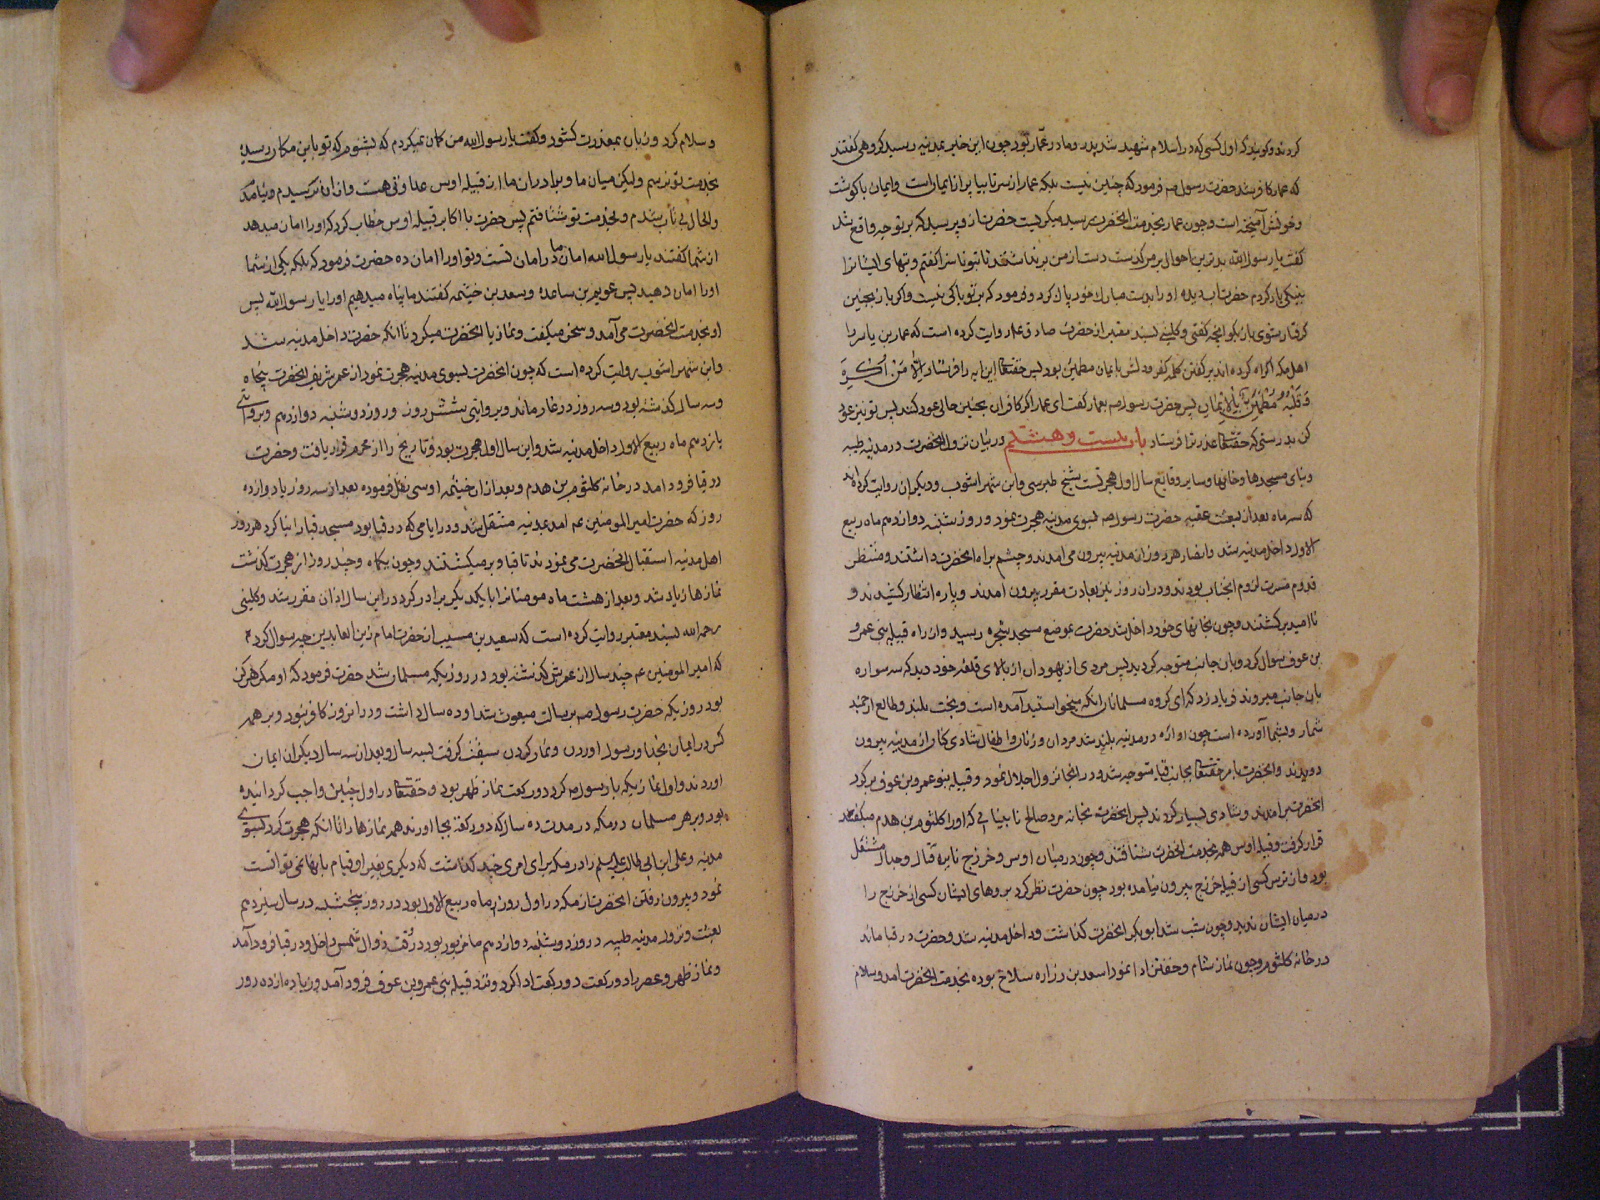 کردند و کویند که اول کسی که در اسلام شهید شد پدر و مادر عمار بود چون این خبر بمدینه رسید کروهی کفتند
که عمار کافر شد حضرت رسول صم فرمود که چنین نیست بلکه عمار از سر تا بپا پر از ایمان است و ایمان با کوشت
و خونش آمیخته است و چون عمار بخدمت انحضرت رسید میکریست حضرت از و پرسید که بر تو چه واقع شد
کفت یا رسول الله بدترین احوال بر من کذشت دست از من برنداشتند تا بتو ناسزا کفتم و بتهای ایشانرا
بنیکی یاد کردم حضرت اب دیده او را بدست مبارک خود پاک کرد و فرمود که بر تو باکی نیست و اکر باز بچنین
کرفتار شوی باز بکو انچه کفتی و کلینی بسند معتبر از حضرت صادق علم روایت کرده است که عمار بن یاسر را
اهل مکه اکراه کرده اند بر کفتن کلمه کفر و دلش بایمان مطمئن بود پس حقتعالی این ایه را فرستاد اِلّا مَنْ اُکْرِهَ
وَ قَلْبُهُ مُطْمَئِنٌّ بِالْاِیمَانِ پس حضرت رسول صم بعمار کفت ای عمار اکر کافران بچنین حال عود کنند پس تو نیز عود
کن بدرستی که حقتعالی عذر ترا فرستاد باب بیست و هشتم در بیان نزول انحضرت در مدینه طیبه
و بنای مسجدها و خانها و سایر وقایع سال اول هجرتست شیخ طبرسی و ابن شهر اشوب و دیکران روایت کرده اند
که سه ماه بعد از بیعت عقبه حضرت رسول صم بسوی مدینه هجرت نمود و روز شنبه دوازدهم ماه ربیع
الاول داخل مدینه شد و انصار هر روز از مدینه بیرون می امدند و چشم براه انحضرت داشتند و منتظر
قدوم مسرت لزوم انجناب بودند و در ان روز نیز بعادت مقرر بیرون امدند و پاره انتظار کشیدند و
نا امید برکشتند و چون بخانهای خود داخل شدند حضرت بموضع مسجد شجره رسید و از راه قبیله بنی عمرو
بن عوف سوال کرد و بان جانب متوجه کردید پس مردی از یهودان از بالای قلعه خود دید که سه سواره
بان جانب میروند فریاد زد که ای کروه مسلمانان انکه میخواستید آمده است و بخت بلند و طالع ارجمند
شما رو بشما آورده است چون اوازه در مدینه بلند شد مردان و زنان و اطفال شادی کنان از مدینه بیرون
دویدند و انحضرت بامر حقتعالی بجانب قبا متوجه شد و در انجا نزول اجلال نمود و قبیله بنو عمرو بن عوف بر کرد
انحضرت برامدند و شادی بسیار کردند پس انحضرت بخانه مرد صالح نابینایی که او را کلثوم بن هدم میکفتند
قرار کرفت و قبیله اوس همه بخدمت انحضرت شتافتند و چون در میان اوس و خزرج نایره قتال و جدال مشتعل
بود و از ترس کسی از قبیله خزرج بیرون نیامده بود چون حضرت نظر کرد بروهای ایشان کسی از خزرج را
در میان ایشان ندید و چون شب شد ابوبکر انحضرت کذاشت و داخل مدینه شد و حضرت در قبا ماند
در خانه کلثوم و چون نماز شام و خفتن ادا نمود اسعد بن زراره سلاح بوده بخدمت انحضرت امد و سلام
و سلام کرد و زبان بمعذرت کشود و کفت یا رسول الله من کمان نمیکردم که بشنوم که تو باین مکان رسیده
بخدمت تو نرسم ولیکن میان ما و برادران ما از قبیله اوس عداوتی هست و از ان ترسیدم و نیامدم
و الحال بی تاب شدم و بخدمت تو شتافتم پس حضرت با اکابر قبیله اوس خطاب کرد که او را امان میدهد
از شما کفتند یا رسول الله امان ما در امان تست و تو او را امان ده حضرت فرمود که بلکه یکی از شما
او را امان دهید پس عویم بن ساعده و سعد بن خیثمه کفتند ما پناه میدهیم او را یا رسول الله پس
او بخدمت انحضرت می آمد و سخن میکفت و نماز با انحضرت میکرد تا انکه حضرت داخل مدینه شد
و ابن شهر اشوب روایت کرده است که چون انحضرت بسوی مدینه هجرت نمود از عمر شریف انحضرت پنجاه
و سه سال کذشته بود و سه روز در غار ماند و بروایتی شش روز و روز دوشنبه دوازدهم و بروایتی
یازدهم ماه ربیع الاول داخل مدینه شد و این سال اول هجرت بود و تاریخ را از محرم قرار یافت و حضرت
در قبا فرود امد در خانه کلثوم بن هدم و بعد از ان خیثمه اوسی نقل فرموده بعد از سه روز یا دوازده
روز که حضرت امیر المومنین عم امد بمدینه منتقل شد و در ایامی که در قبا بود مسجد قبا را بنا کرد هر روز
اهل مدینه استقبال انحضرت می نمودند تا قبا و بر میکشتند و چون یکماه و چند روز از هجرت کذشت
نمازها زیاد شد و بعد از هشت ماه مومنانرا با یکدیکر برادر کرد و در این سال اذان مقرر شد و کلینی
رحمه الله بسند معتبر روایت کرده است که سعید بن مسیب از حضرت امام زین العابدین عم سوال کرد
که امیر المومنین عم چند سال از عمرش کذشته بود در روزیکه مسلمان شد حضرت فرمود که او مکر هرکز کافر
بود روزیکه حضرت رسول صم برسالت مبعوث شد او ده سال داشت و در انروز کافر نبود و بر همه
کس در ایمان بخدا و رسول اوردن و نماز کردن سبقت کرفت بسه سال و بعد از سه سال دیکران ایمان
اوردند و اول نمازیکه با رسول صم کرد دو رکعت نماز ظهر بود و حقتعالی در اول چنین واجب کردانیده
بود و بر هر مسلمان در مکه در مدت ده سال که دو رکعت بجا اورند همه نمازها را تا انکه هجرت کرد بسوی
مدینه و علی ابن ابی طالب علیه السلم را در مکه برای امری چند کذاشت که دیکری بغیر او قیام بانها نمی توانست
نمود و بیرون رفتن انحضرت از مکه در اول روز از ماه ربیع الاول بود در روز پنجشنبه در سال سیزدهم
بعثت و نزول مدینه طیبه در روز دوشنبه دوازدهم ماه مزبور بود در وقت زوال شمس داخل و در قبا فرود آمد
و نماز ظهر و عصر را دو رکعت دو رکعت ادا کرد و نزد قبیله بنی عمرو بن عوف فرود آمد و زیاده از ده روز